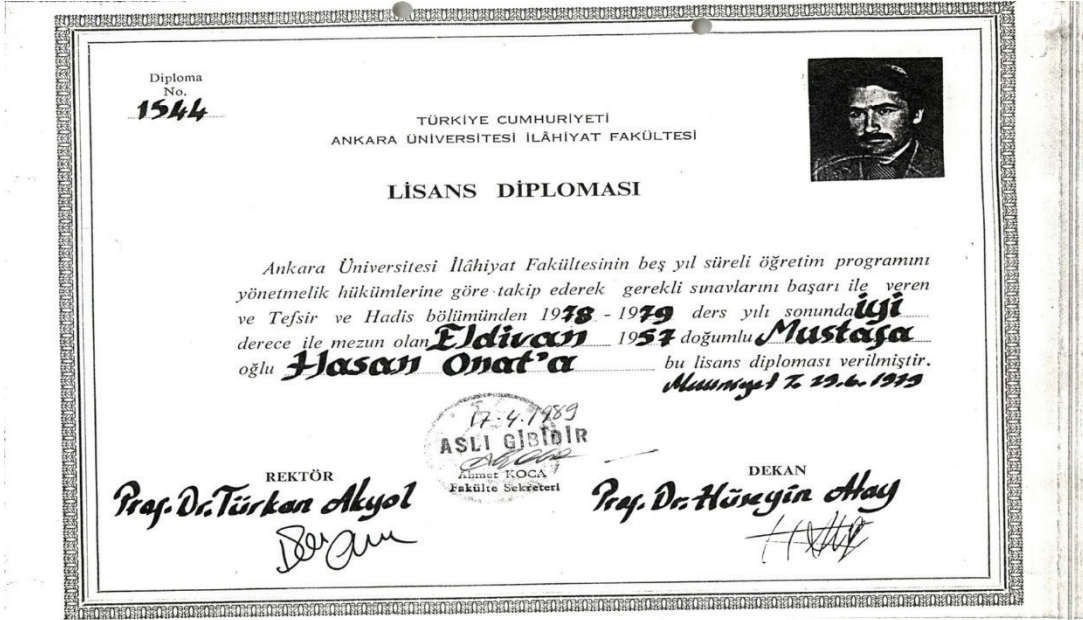 Diploma
No.
1544
TÜRKİYE CUMHURİYETİ
ANKARA ÜNİVERSİTESİ İLÂHİYAT FAKÜLTESİ
LİSANS DİPLOMASI
Ankara Üniversitesi İlâhiyat Fakültesinin beş yıl süreli öğretim programını
yönetmelik hükümlerine göre takip ederek gerekli sınavlarını başarı ile veren
ve Tefsir ve Hadis bölümünden 1978 - 1979 ders yılı sonunda iyi
derece ile mezun olan Eldivan 1957 doğumlu Mustafa
oğlu Hasan Onat'a bu lisans diploması verilmiştir.
Mezuniyet T. 29.6.1979
17.4.1989
ASLI GİBİDİR
Ahmet KOCA
Fakülte Sekreteri
REKTÖR
Prof. Dr. Türkan Akyol
DEKAN
Prof. Dr. Hüseyin Atay